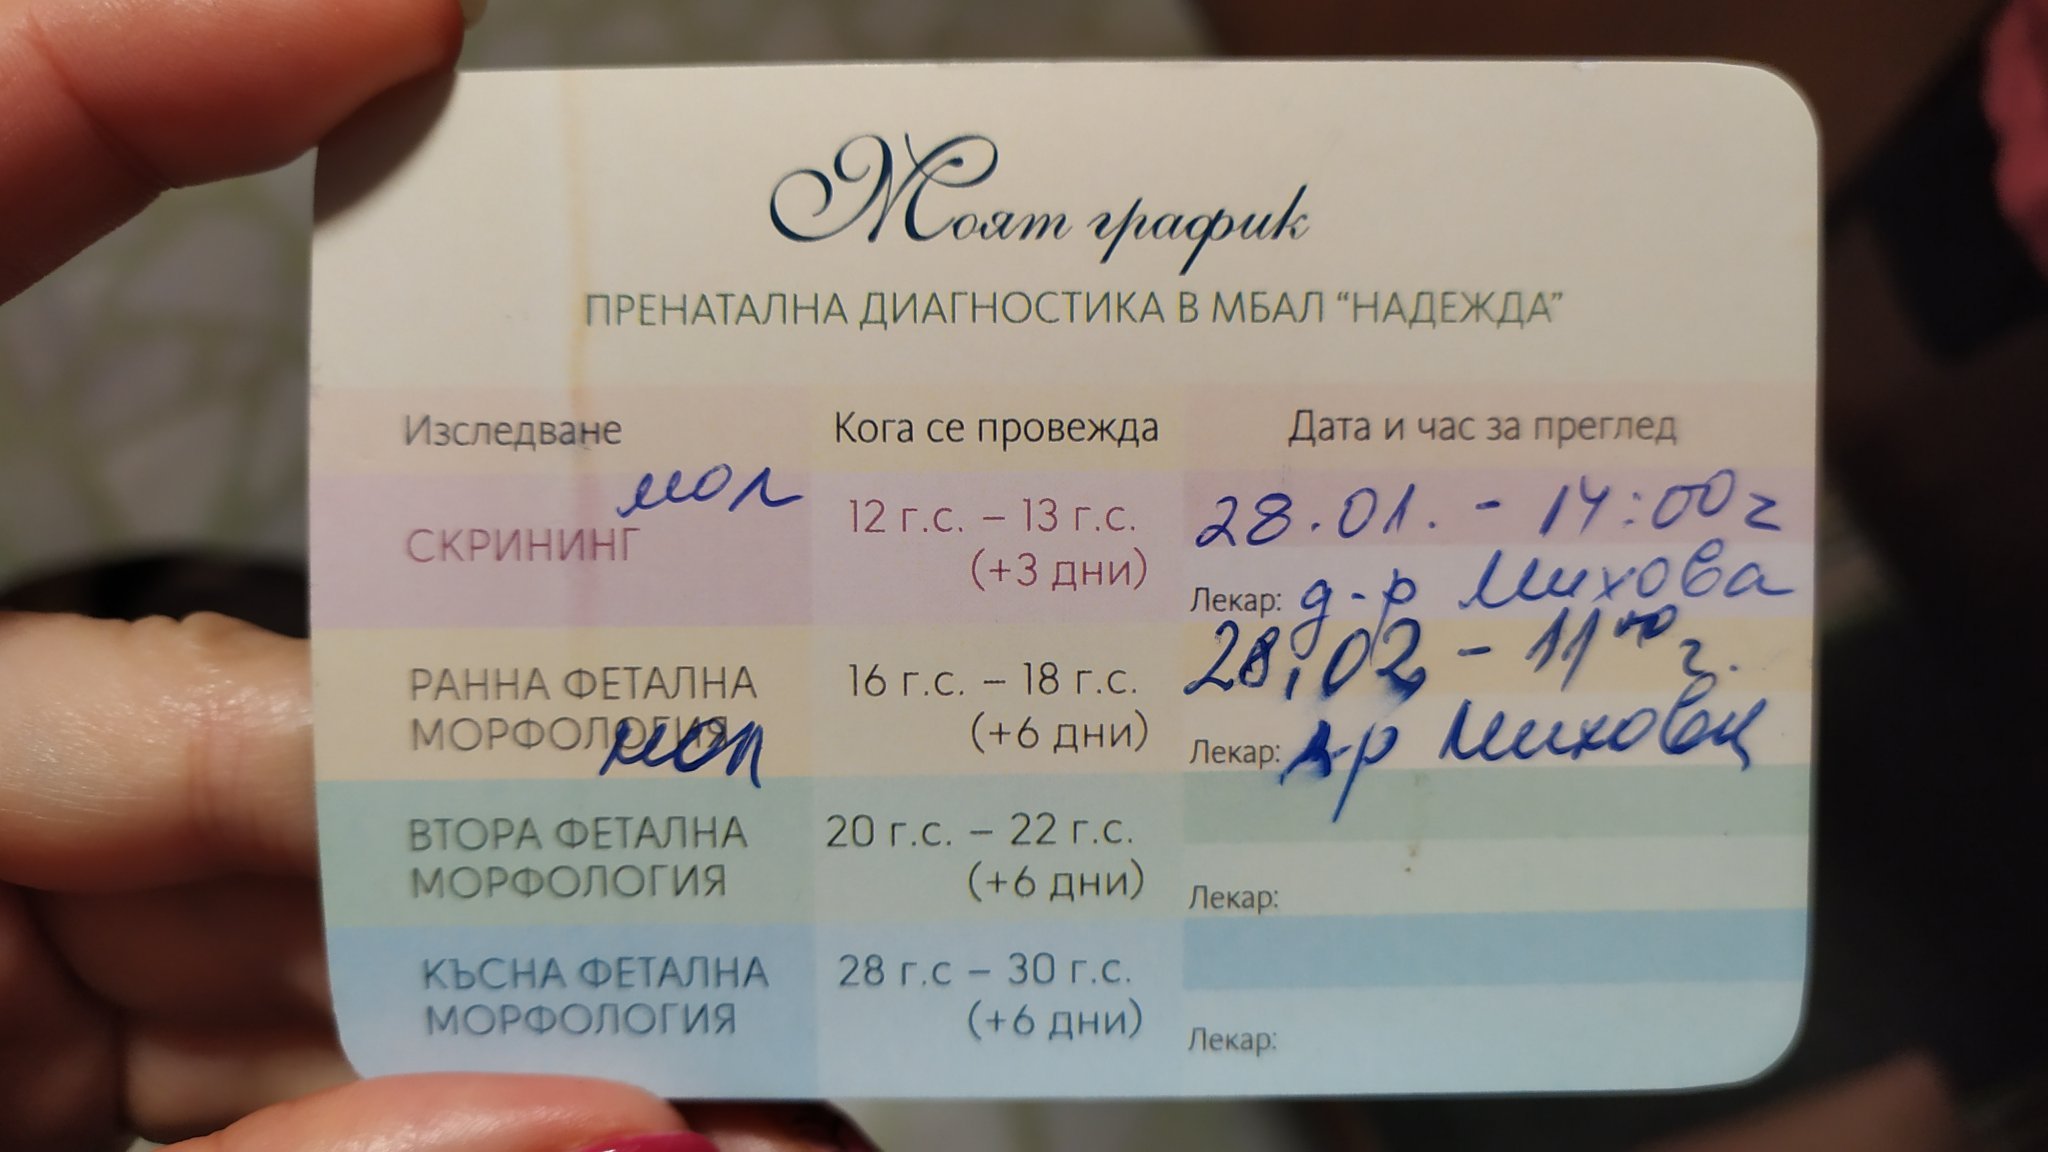 Моят график
ПРЕНАТАЛНА ДИАГНОСТИКА В МБАЛ “НАДЕЖДА”
Изследване Кога се провежда Дата и час за преглед
СКРИНИНГ
12 г.с. – 13 г.с.
(+3 дни)
28.01. - 14:00 г
Лекар: д-р Михова
РАННА ФЕТАЛНА
МОРФОЛОГИЯ
16 г.с. – 18 г.с.
(+6 дни)
28.02. - 11 00 г.
Лекар: д-р Михова
ВТОРА ФЕТАЛНА
МОРФОЛОГИЯ
20 г.с. – 22 г.с.
(+6 дни)
Лекар:
КЪСНА ФЕТАЛНА
МОРФОЛОГИЯ
28 г.с – 30 г.с.
(+6 дни)
Лекар: